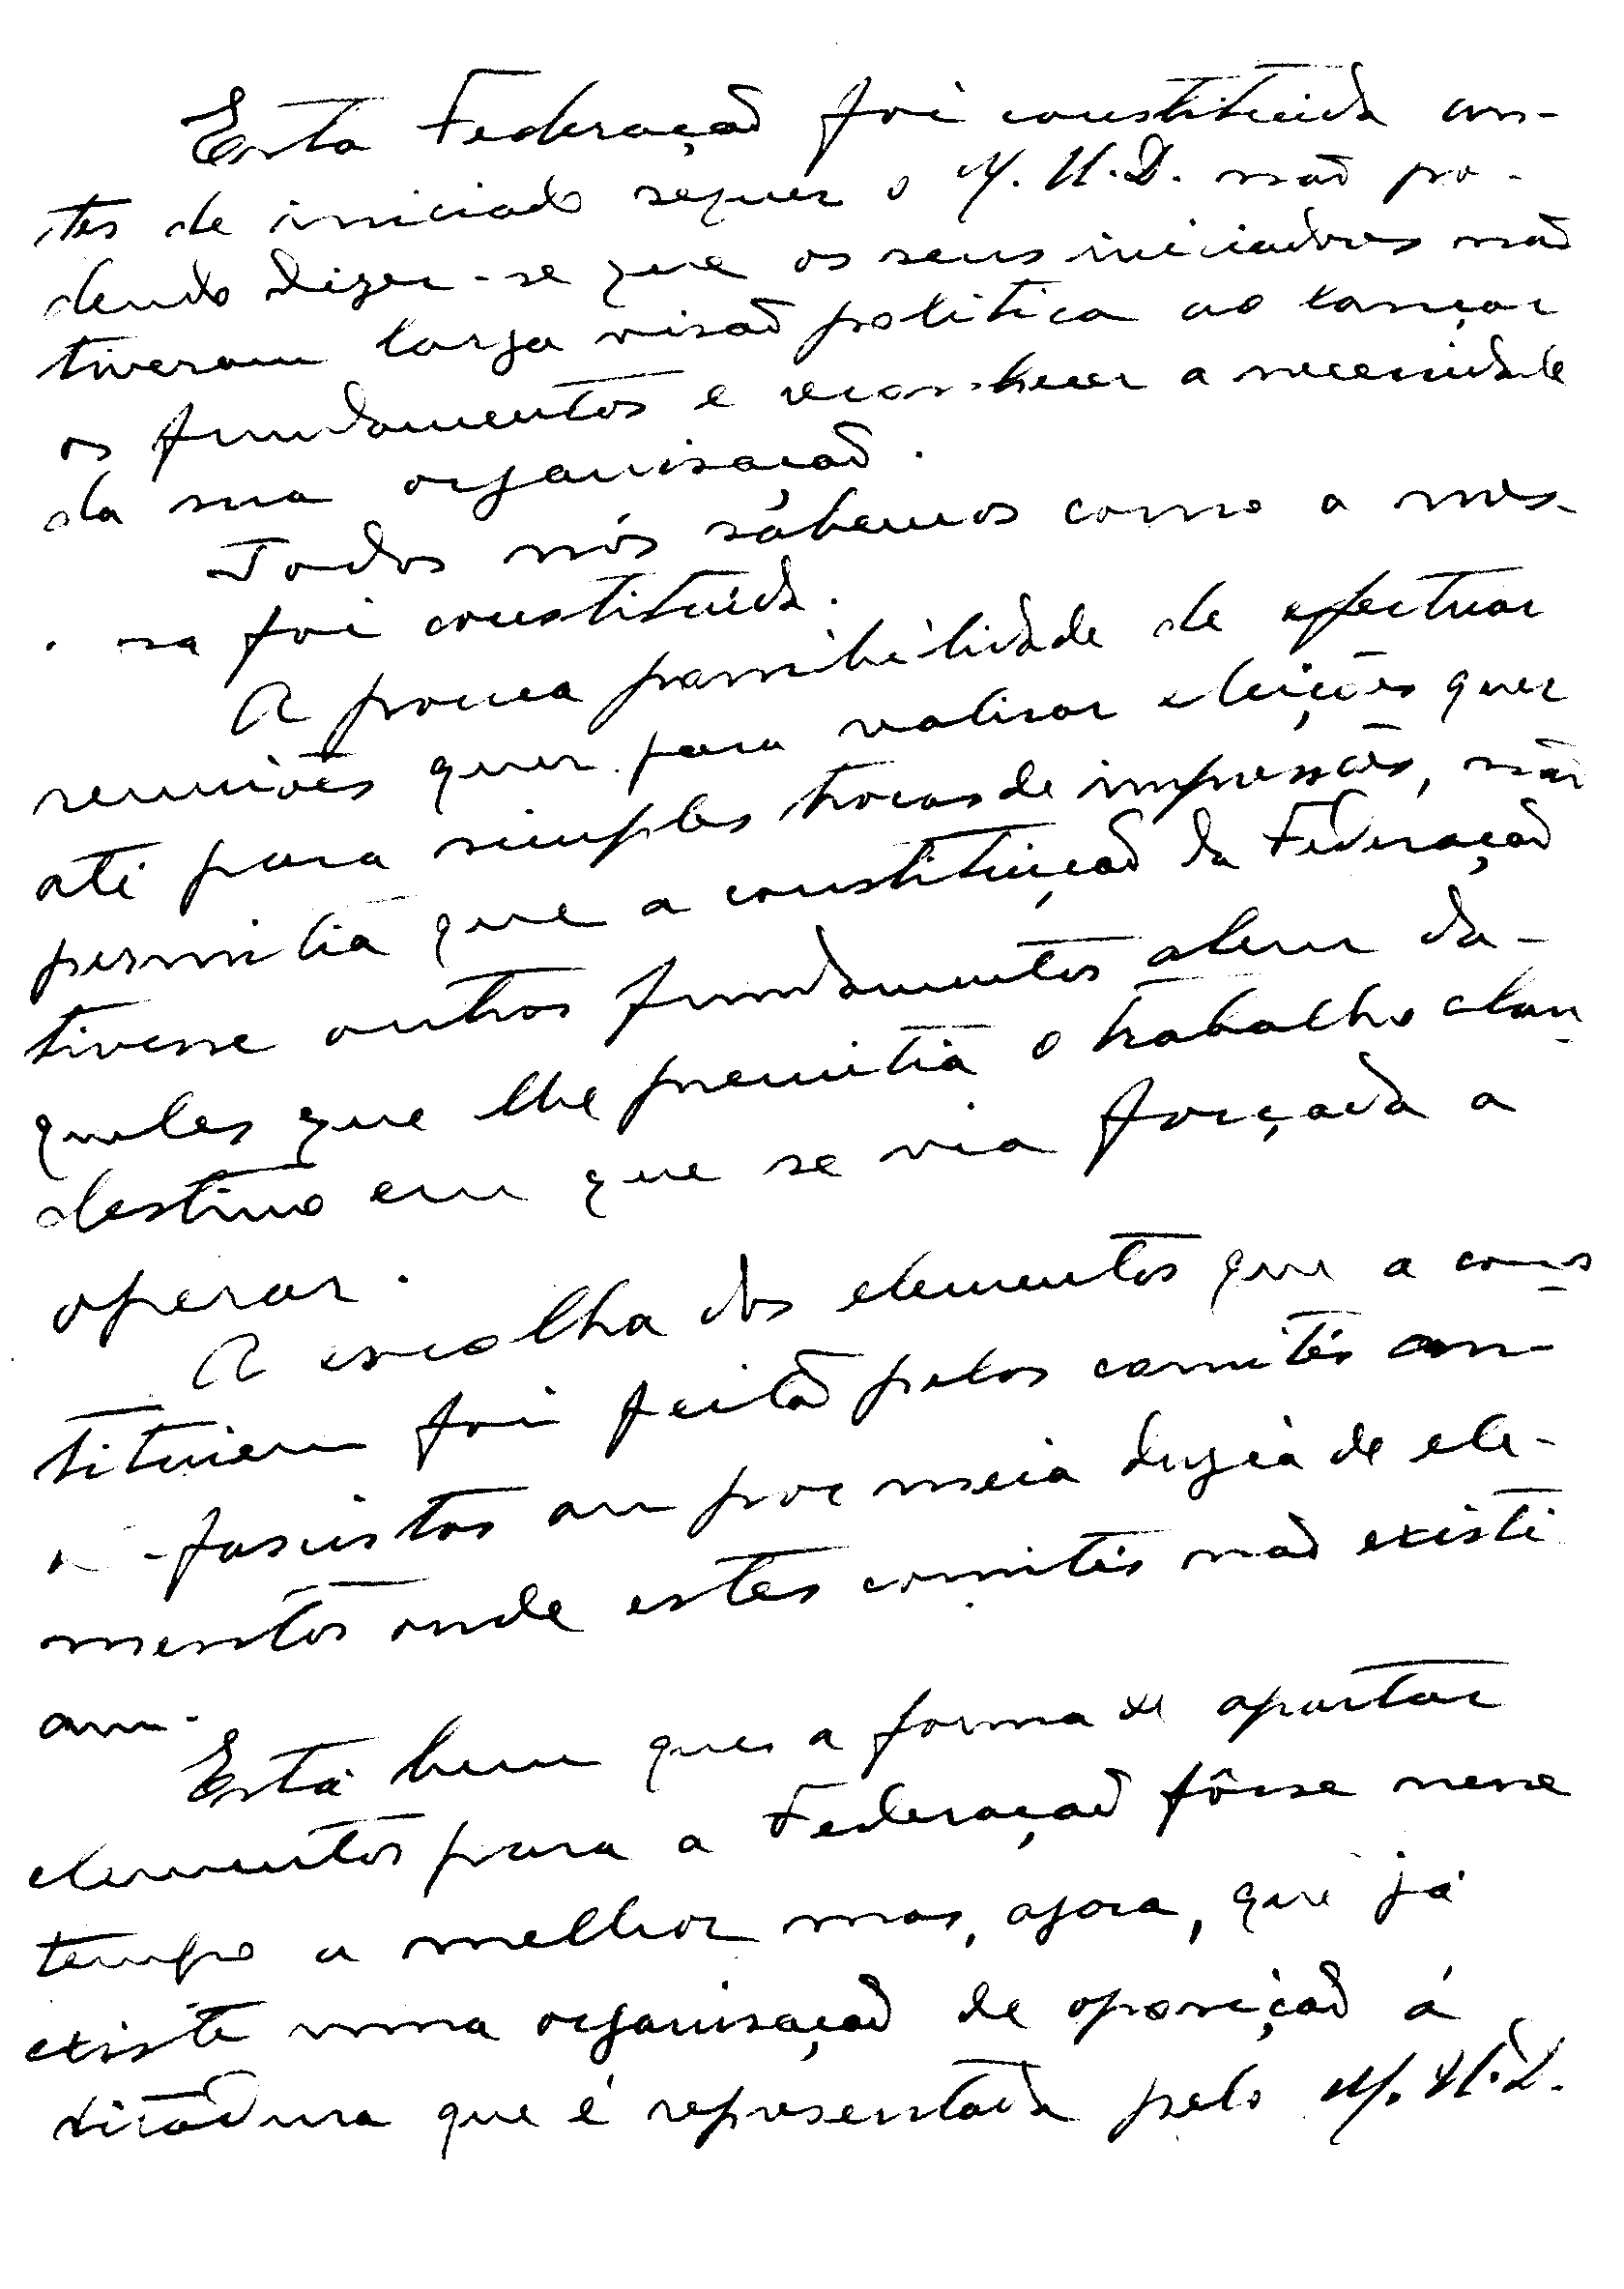 Esta Federação foi constituida an-
tes de iniciado sequer o M.U.D. não po-
dendo dizer-se que os seus iniciadores não
tiveram larga visão politica ao lançar
os fundamentos e reconhecer a necessidade
da sua organisação.
Todos nós sábemos como a mes-
ma foi constituída.
A pouca possibilidade de efectuar
reuniões quer para realisar eleições quer
até para simples trocas de impressões, não
permitia que a constituição da Federação
tivesse outros fundamentos alem da-
queles que lhe premitia o trabalho clan-
destino em que se via forçada a
operar.
A escolha dos elementos que a cons-
tituiem foi feita pelos comités an-
ti-fascistas ou por meia duzia de ele-
mentos onde estes comités não existi
am.
Está bem que a forma de apartar
elementos para a Federação fôsse nesse
tempo a melhor mas, agora, que já
existe uma organisação de oposição á
ditadura que é representada pelo M.U.D.